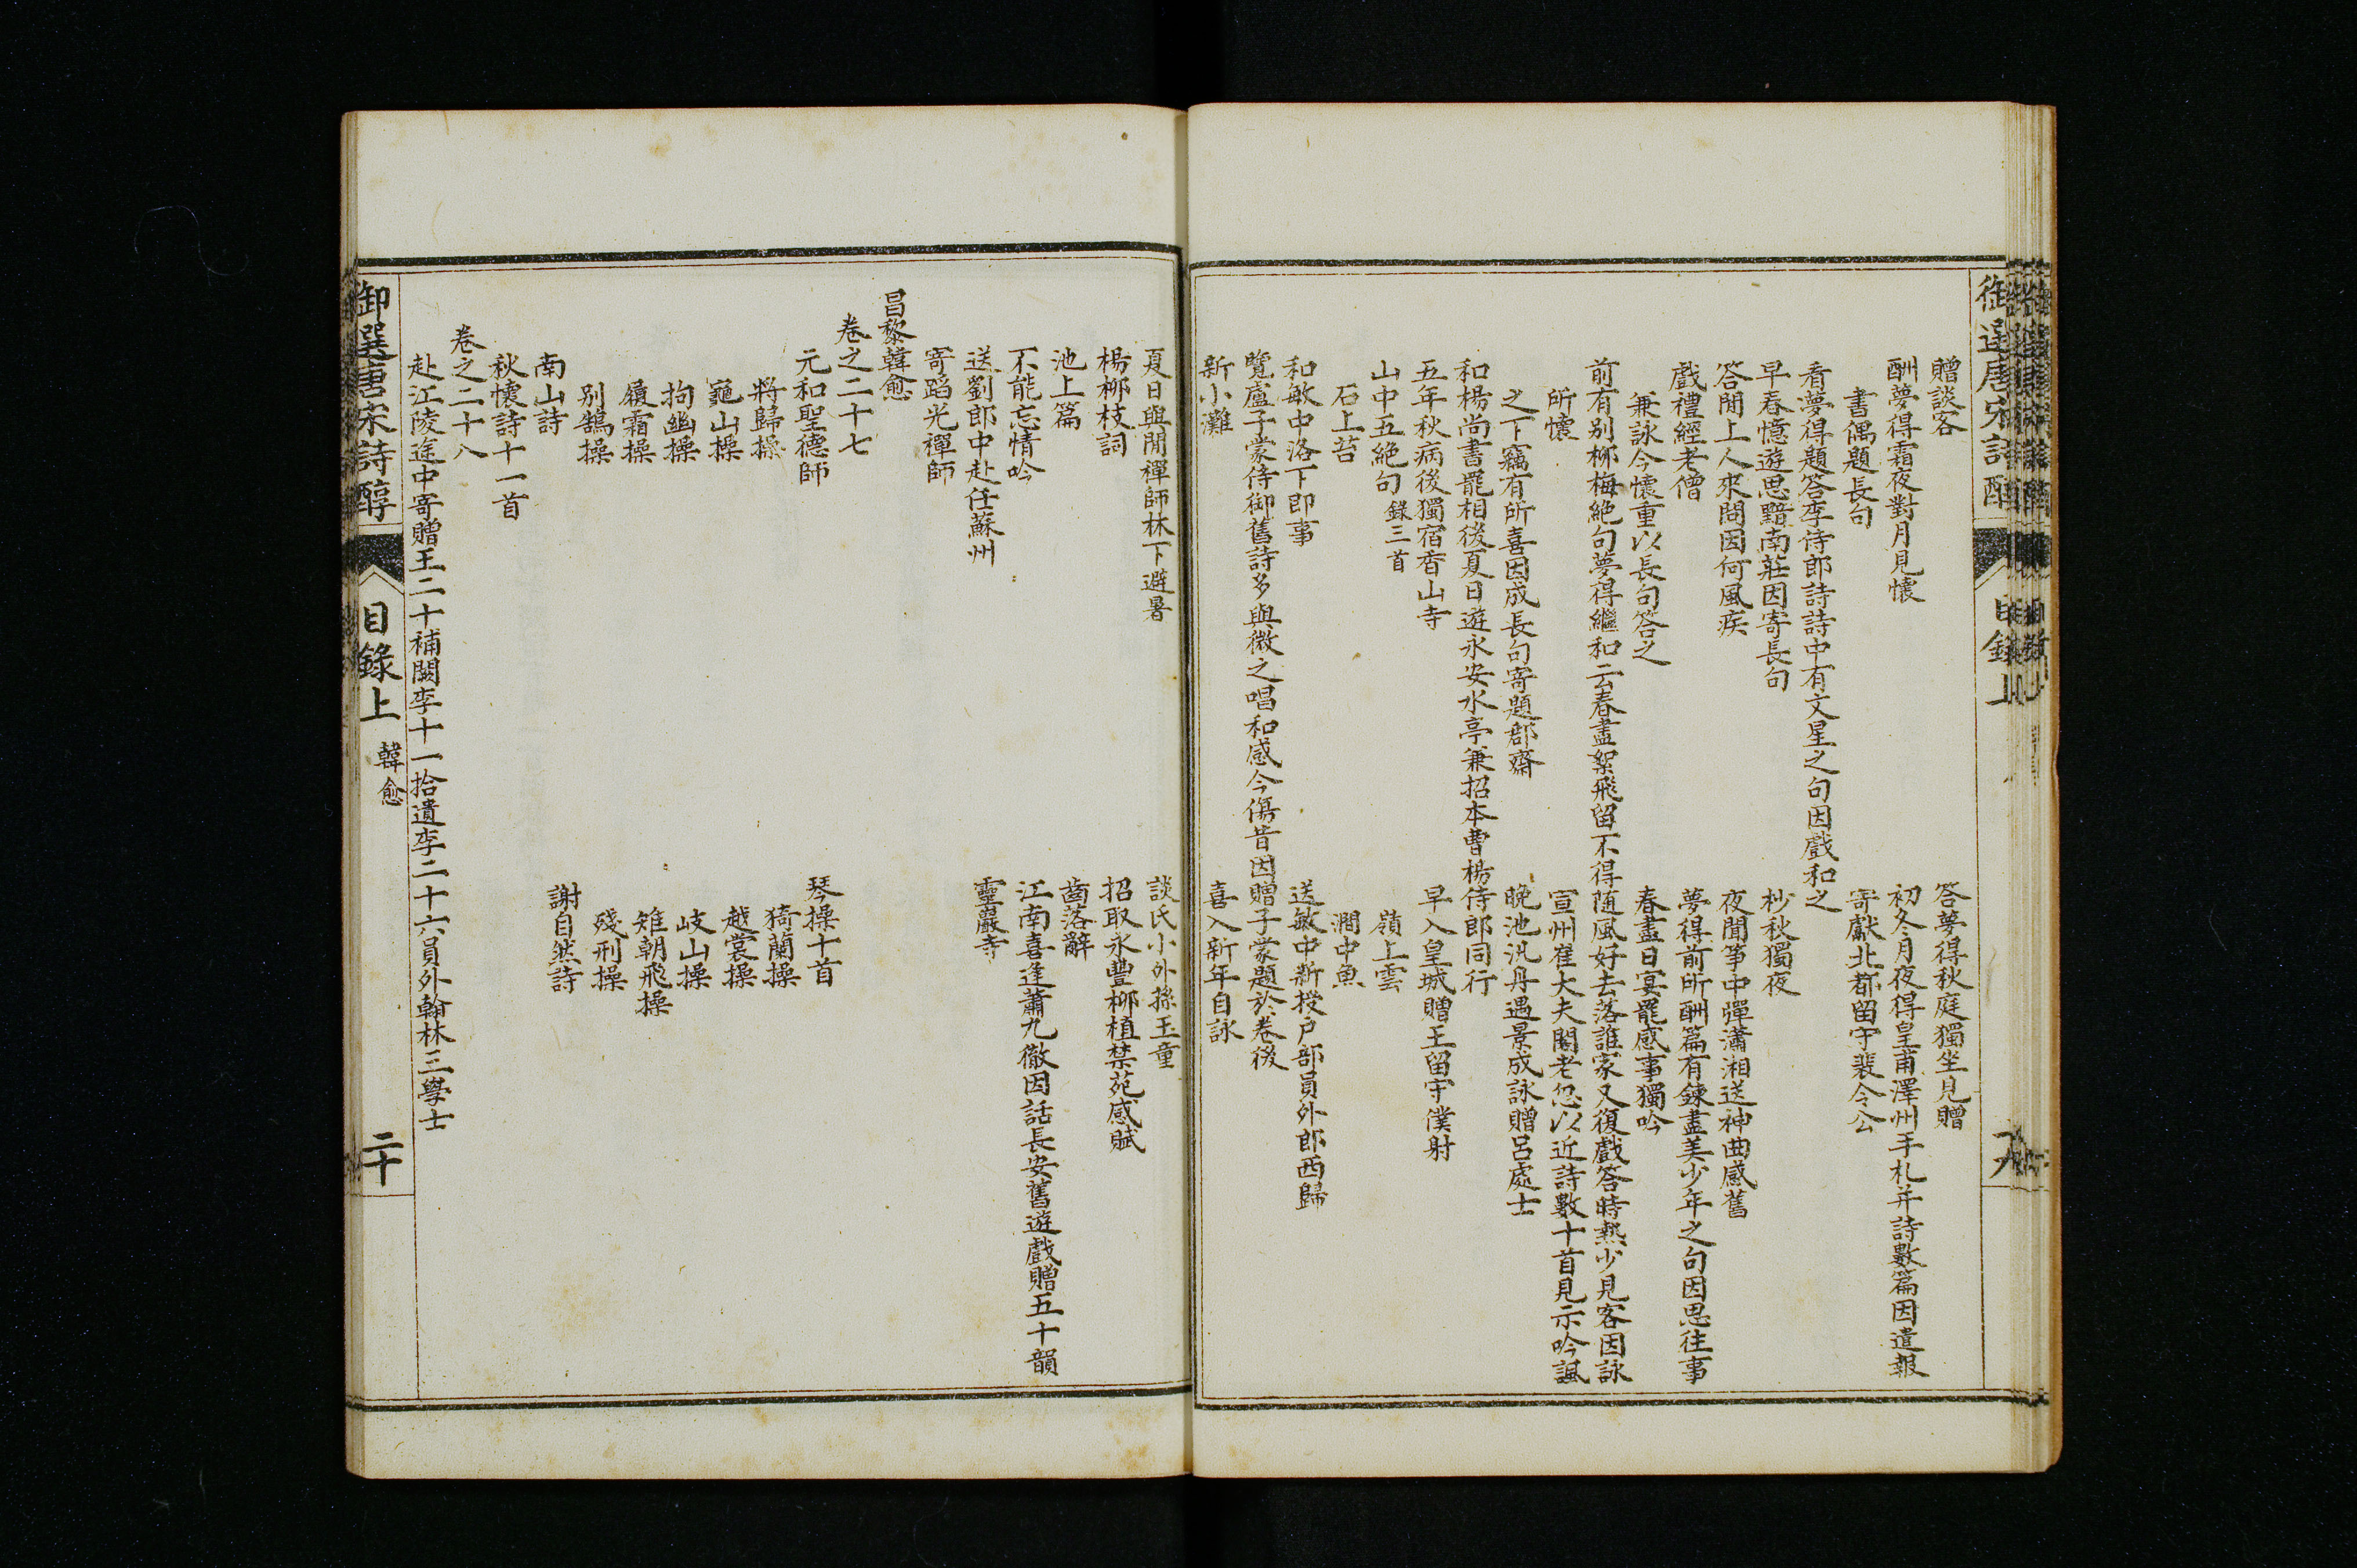 贈談客
答夢得秋庭獨坐見贈
酬夢得霜夜對月見懷
初冬月夜得皇甫澤州手札并詩數篇因遣報
書偶題長句
寄獻北都留守裴令公
看夢得題答李侍郎詩詩中有文星之句因戲和之
早春憶遊思黯南莊因寄長句
杪秋獨夜
答閒上人來問因何風疾
夜聞箏中彈瀟湘送神曲感舊
戲禮經老僧
夢得前所酬篇有鍊盡美少年之句因思往事
兼詠今懷重以長句答之
春盡日宴罷感事獨吟
前有别柳梅絶句夢得繼和云春盡絮飛留不得随風好去落誰家又復戲答時熱少見客因詠
所懷
宣州崔大夫閣老忽以近詩數十首見示吟諷
之下竊有所喜因成長句寄題郡齋
晚池汎舟遇景成詠贈呂處士
和楊尚書罷相後夏日遊永安水亭兼招本曹楊侍郎同行
五年秋病後獨宿香山寺
早入皇城贈王留守僕射
山中五絶句 錄三首
嶺上雲
石上苔
澗中魚
和敏中洛下即事
送敏中新授戸部員外郎西歸
覽盧子蒙侍御舊詩多與微之唱和感今傷昔因贈子蒙題於卷後
新小灘
喜入新年自詠
夏日與閒禪師林下避暑
談氏小外孫玉童
楊柳枝詞
招取永豐柳植禁苑感賦
池上篇
齒落辭
不能忘情吟
江南喜逢蕭九徹因話長安舊遊戲贈五十韻
送劉郎中赴任蘇州
靈巖寺
寄蹈光禪師
昌黎韓愈
卷之二十七
元和聖德師
琴操十首
將歸操
猗蘭操
龜山操
越裳操
拘幽操
岐山操
履霜操
雉朝飛操
别鵠操
殘刑操
南山詩
謝自然詩
秋懷詩十一首
卷之二十八
赴江陵途中寄贈王二十補闕李十一拾遺李二十六員外翰林三學士
御選唐宋詩醇
目錄上
韓愈
二十